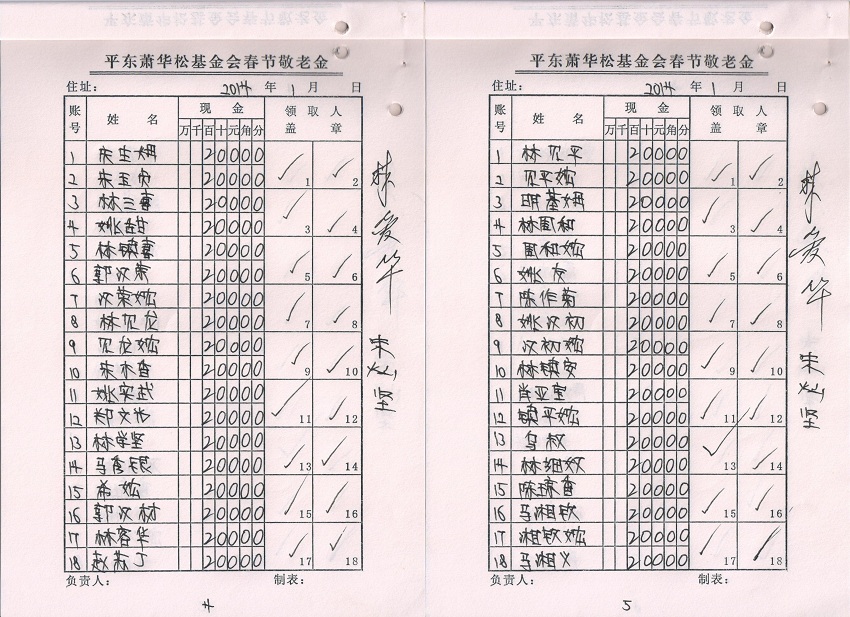 平东萧华松基金会春节敬老金
住址： 2014 年 1 月 日
账号 姓 名 现 金 领 取 人
万 千 百 十 元 角 分 盖 章
1 20000
2 20000 1 2
3 林三喜 20000
4 姚甜 20000 3 4
5 林镇喜 20000
6 郭汉荣 20000 5 6
7 汉荣嫂 20000
8 林见龙 20000 7 8
9 见龙嫂 20000
10 朱木香 20000 9 10
11 姚实武 20000
12 郑文 20000 11 12
13 林学坚 20000
14 马秀银 20000 13 14
15 希嫂 20000
16 郭汉树 20000 15 16
17 林容华 20000
18 20000 17 18
负责人： 制表：
4
平东萧华松基金会春节敬老金
住址： 2014 年 1 月 日
账号 姓 名 现 金 领 取 人
万 千 百 十 元 角 分 盖 章
1 林见平 20000
2 见平嫂 20000 1 2
3 明基姆 20000
4 林围和 20000 3 4
5 围和嫂 20000
6 姚友 20000 5 6
7 陈作菊 20000
8 姚汉初 20000 7 8
9 汉初嫂 20000
10 林镇安 20000 9 10
11 20000
12 镇平嫂 20000 11 12
13 乌叔 20000
14 林细妹 20000 13 14
15 陈琼香 20000
16 马湘钦 20000 15 16
17 湘钦嫂 20000
18 马湘义 20000 17 18
负责人： 制表：
5